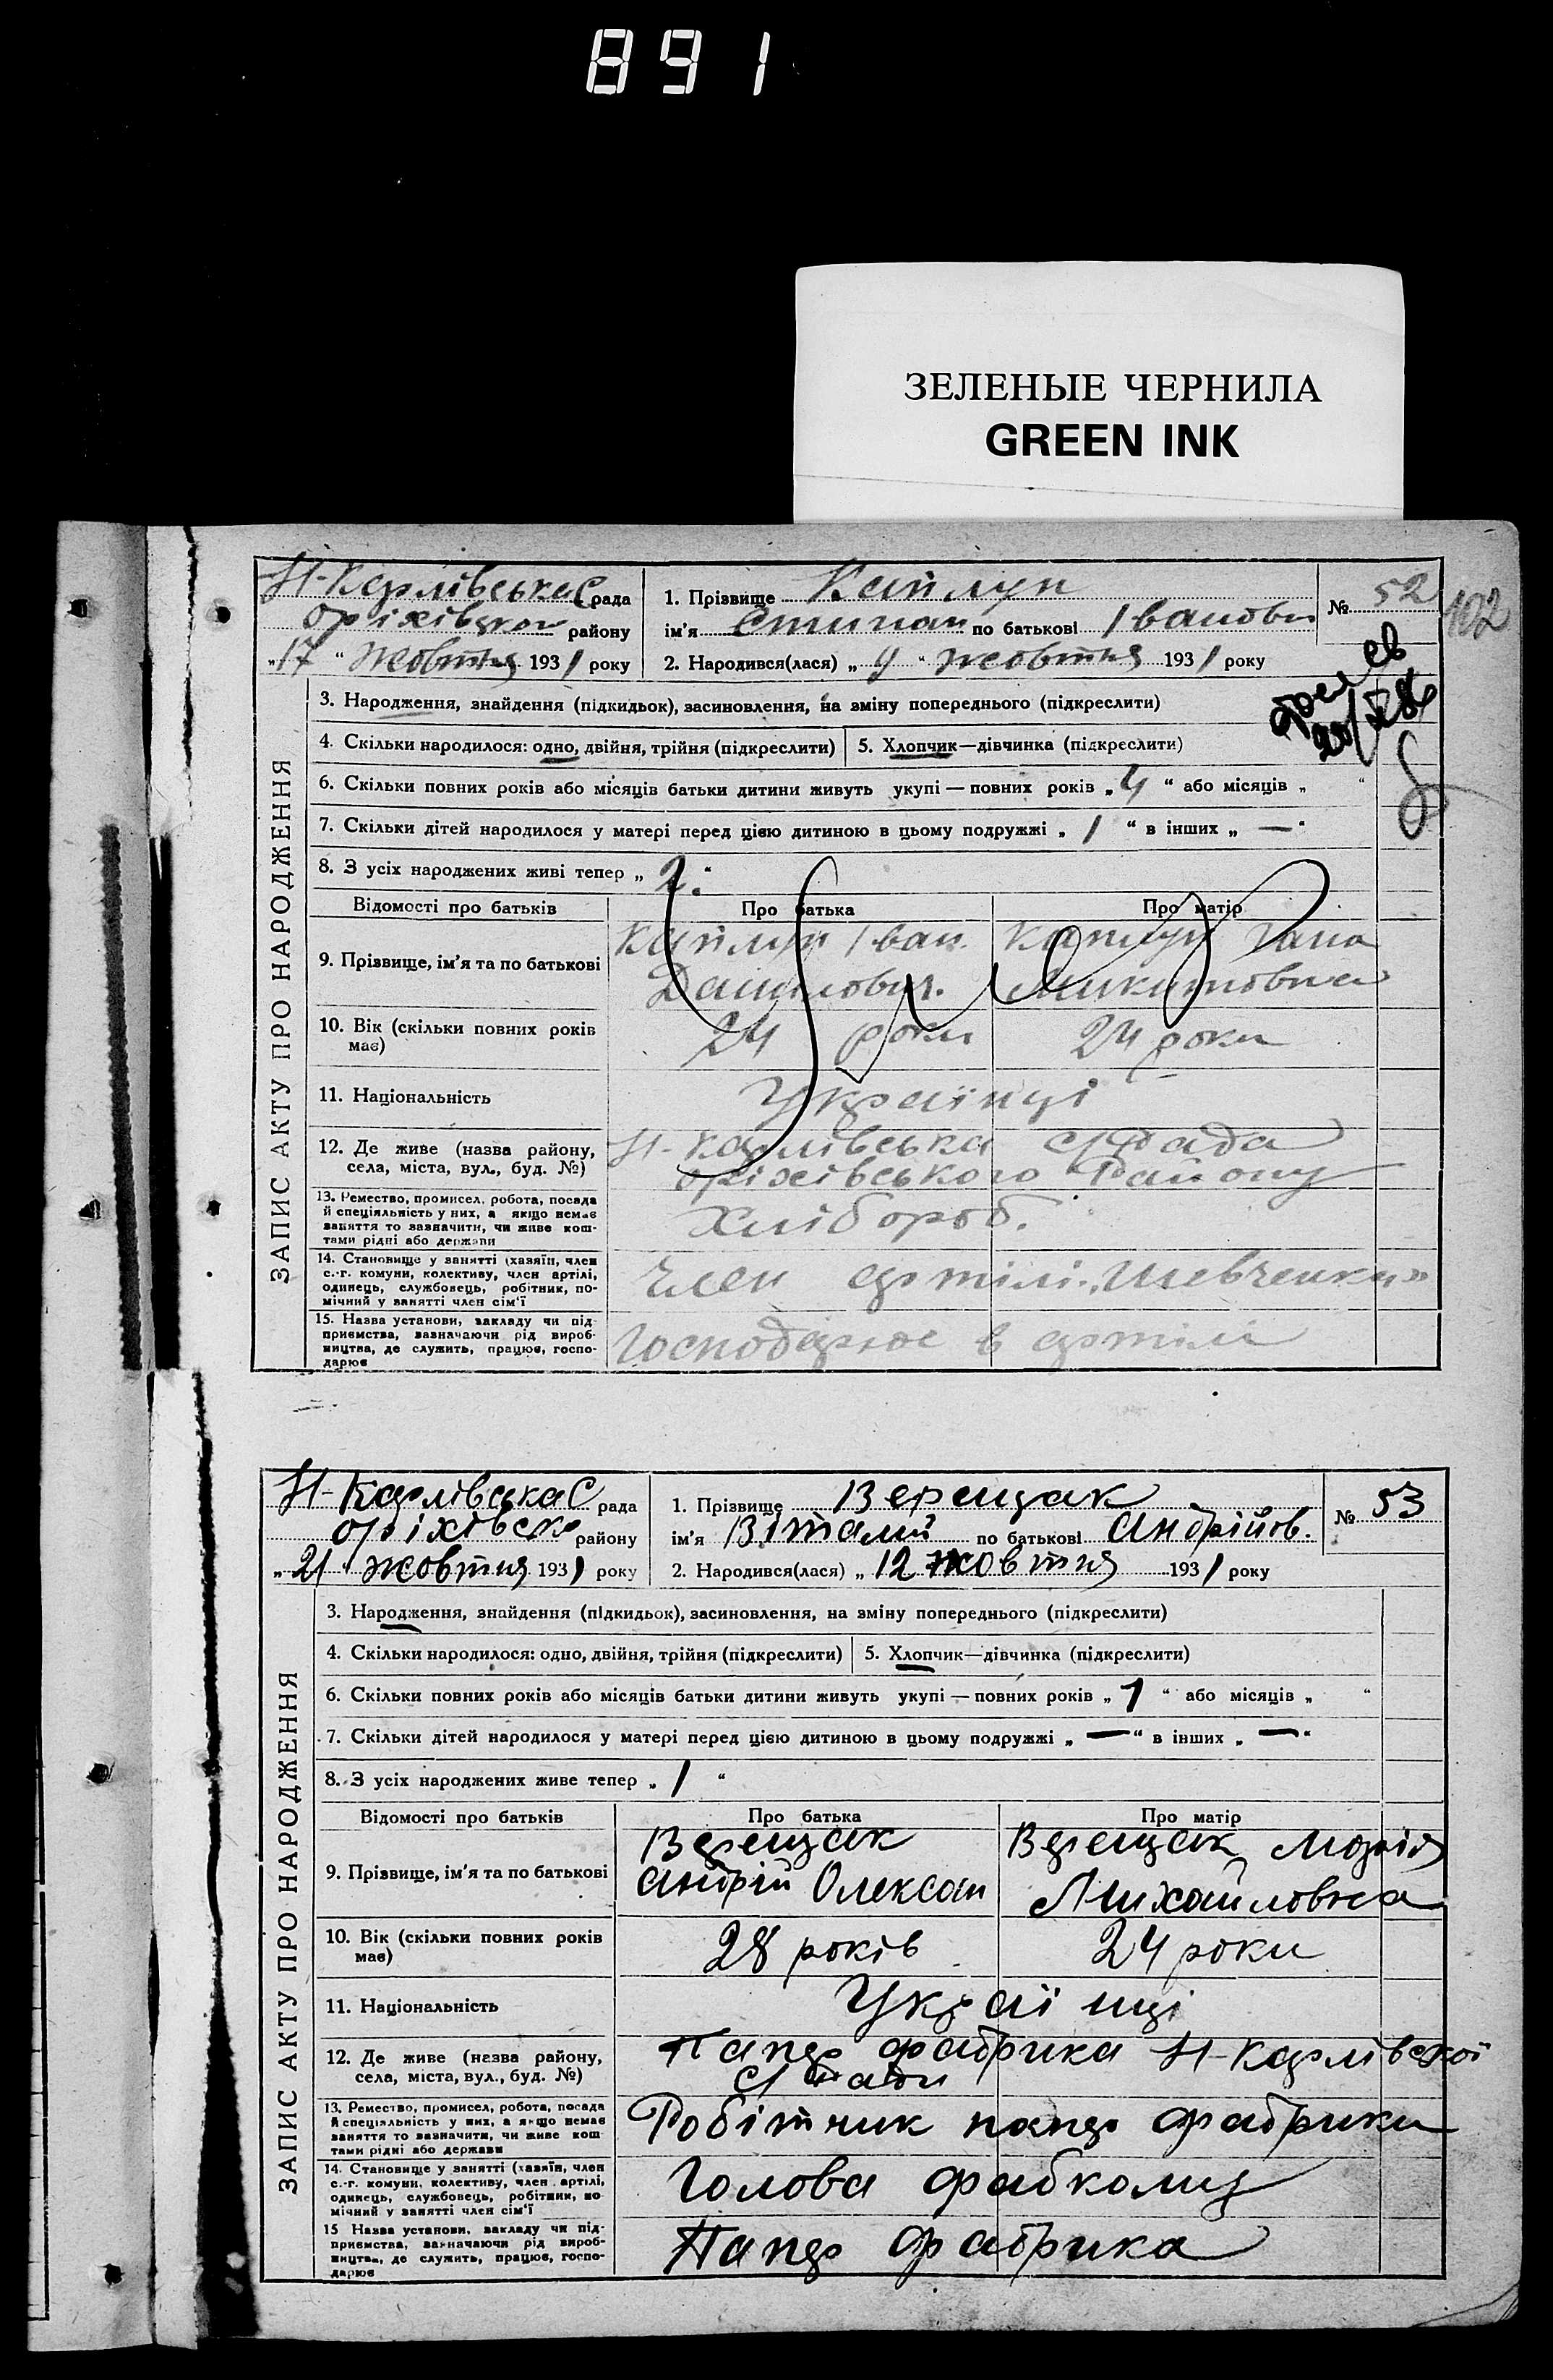 891
ЗЕЛЕНЫЕ ЧЕРНИЛА
GREEN INK
102
Н-Карлівська С рада
оріхівськой району
„17“ жовтня 1931 року
1. Прізвище
ім'я по батькові Іванович
2. Народився(лася) „9“ жовтня 1931 року
№ 52
ЗАПИС АКТУ ПРО НАРОДЖЕННЯ
3. Народження, знайдення (підкидьок), засиновлення, на зміну попереднього (підкреслити)
4. Скільки народилося: одно, двійня, трійня (підкреслити) 5. Хлопчик—дівчинка (підкреслити)
6. Скільки повних років або місяців батьки дитини живуть укупі — повних років „4“ або місяців „ “
7. Скільки дітей народилося у матері перед цією дитиною в цьому подружжі „1“ в інших „—“
8. З усіх народжених живі тепер „2“
Відомості про батьків Про батька Про матір
9. Прізвище, ім'я та по батькові
Іван
Данилович.
Микитовна
10. Вік (скільки повних років
має)
24 роки 24 роки
11. Національність Українці
12. Де живе (назва району,
села, міста, вул., буд. №)
Н-Карлівська С/Рада
оріхівського Району
13. Ремество, промисел, робота, посада
й спеціяльність у них, а якщо немає
заняття то зазначити, чи живе кош-
тами рідні або держави
Хлібороб.
14. Становище у занятті (хазяїн, член
с.-г. комуни, колективу, член артілі,
одинець, службовець, робітник, по-
мічний у занятті член сім'ї
Член артілі „Шевченка»
15. Назва установи, закладу чи під-
приємства, зазначаючи рід вироб-
ництва, де служить, працює, госпо-
дарює
Господарює в артілі
Н-Карлівська С рада
оріхівск району
„21“ жовтня 1931 року
1. Прізвище Верещак
ім'я Віталий по батькові Андрійов.
2. Народився(лася) „12 жовтня 1931 року
№ 53
ЗАПИС АКТУ ПРО НАРОДЖЕННЯ
3. Народження, знайдення (підкидьок), засиновлення, на зміну попереднього (підкреслити)
4. Скільки народилося: одно, двійня, трійня (підкреслити) 5. Хлопчик—дівчинка (підкреслити)
6. Скільки повних років або місяців батьки дитини живуть укупі — повних років „1“ або місяців „ “
7. Скільки дітей народилося у матері перед цією дитиною в цьому подружжі „—“ в інших „—“
8. З усіх народжених живе тепер „1“
Відомості про батьків Про батька Про матір
9. Прізвище, ім'я та по батькові
Верещак Верещак Марія
Андрій Олексан Михайловна
10. Вік (скільки повних років
має)
28 років 24 роки
11. Національність Українці
12. Де живе (назва району,
села, міста, вул., буд. №)
Папер фабрика Н-Карлівської
С/Ради
13. Ремество, промисел, робота, посада
й спеціяльність у них, а якщо немає
заняття то зазначити, чи живе кош-
тами рідні або держави
Робітник папер фабрики
14. Становище у занятті (хазяїн, член
с.-г. комуни, колективу, член артілі,
одинець, службовець, робітник, по-
мічний у занятті член сім'ї
Голова фабкому
15 Назва установи, закладу чи під-
приємства, зазначаючи рід вироб-
ництва, де служить, працює, госпо-
дарює
Папер фабрика